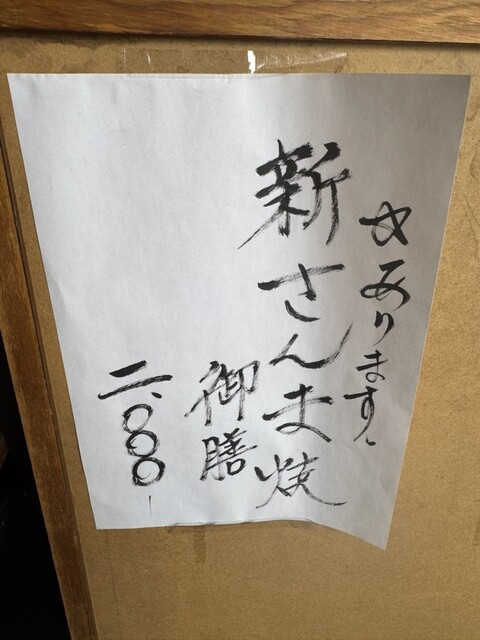 あります。
新さんま焼
御膳
二、〇〇〇